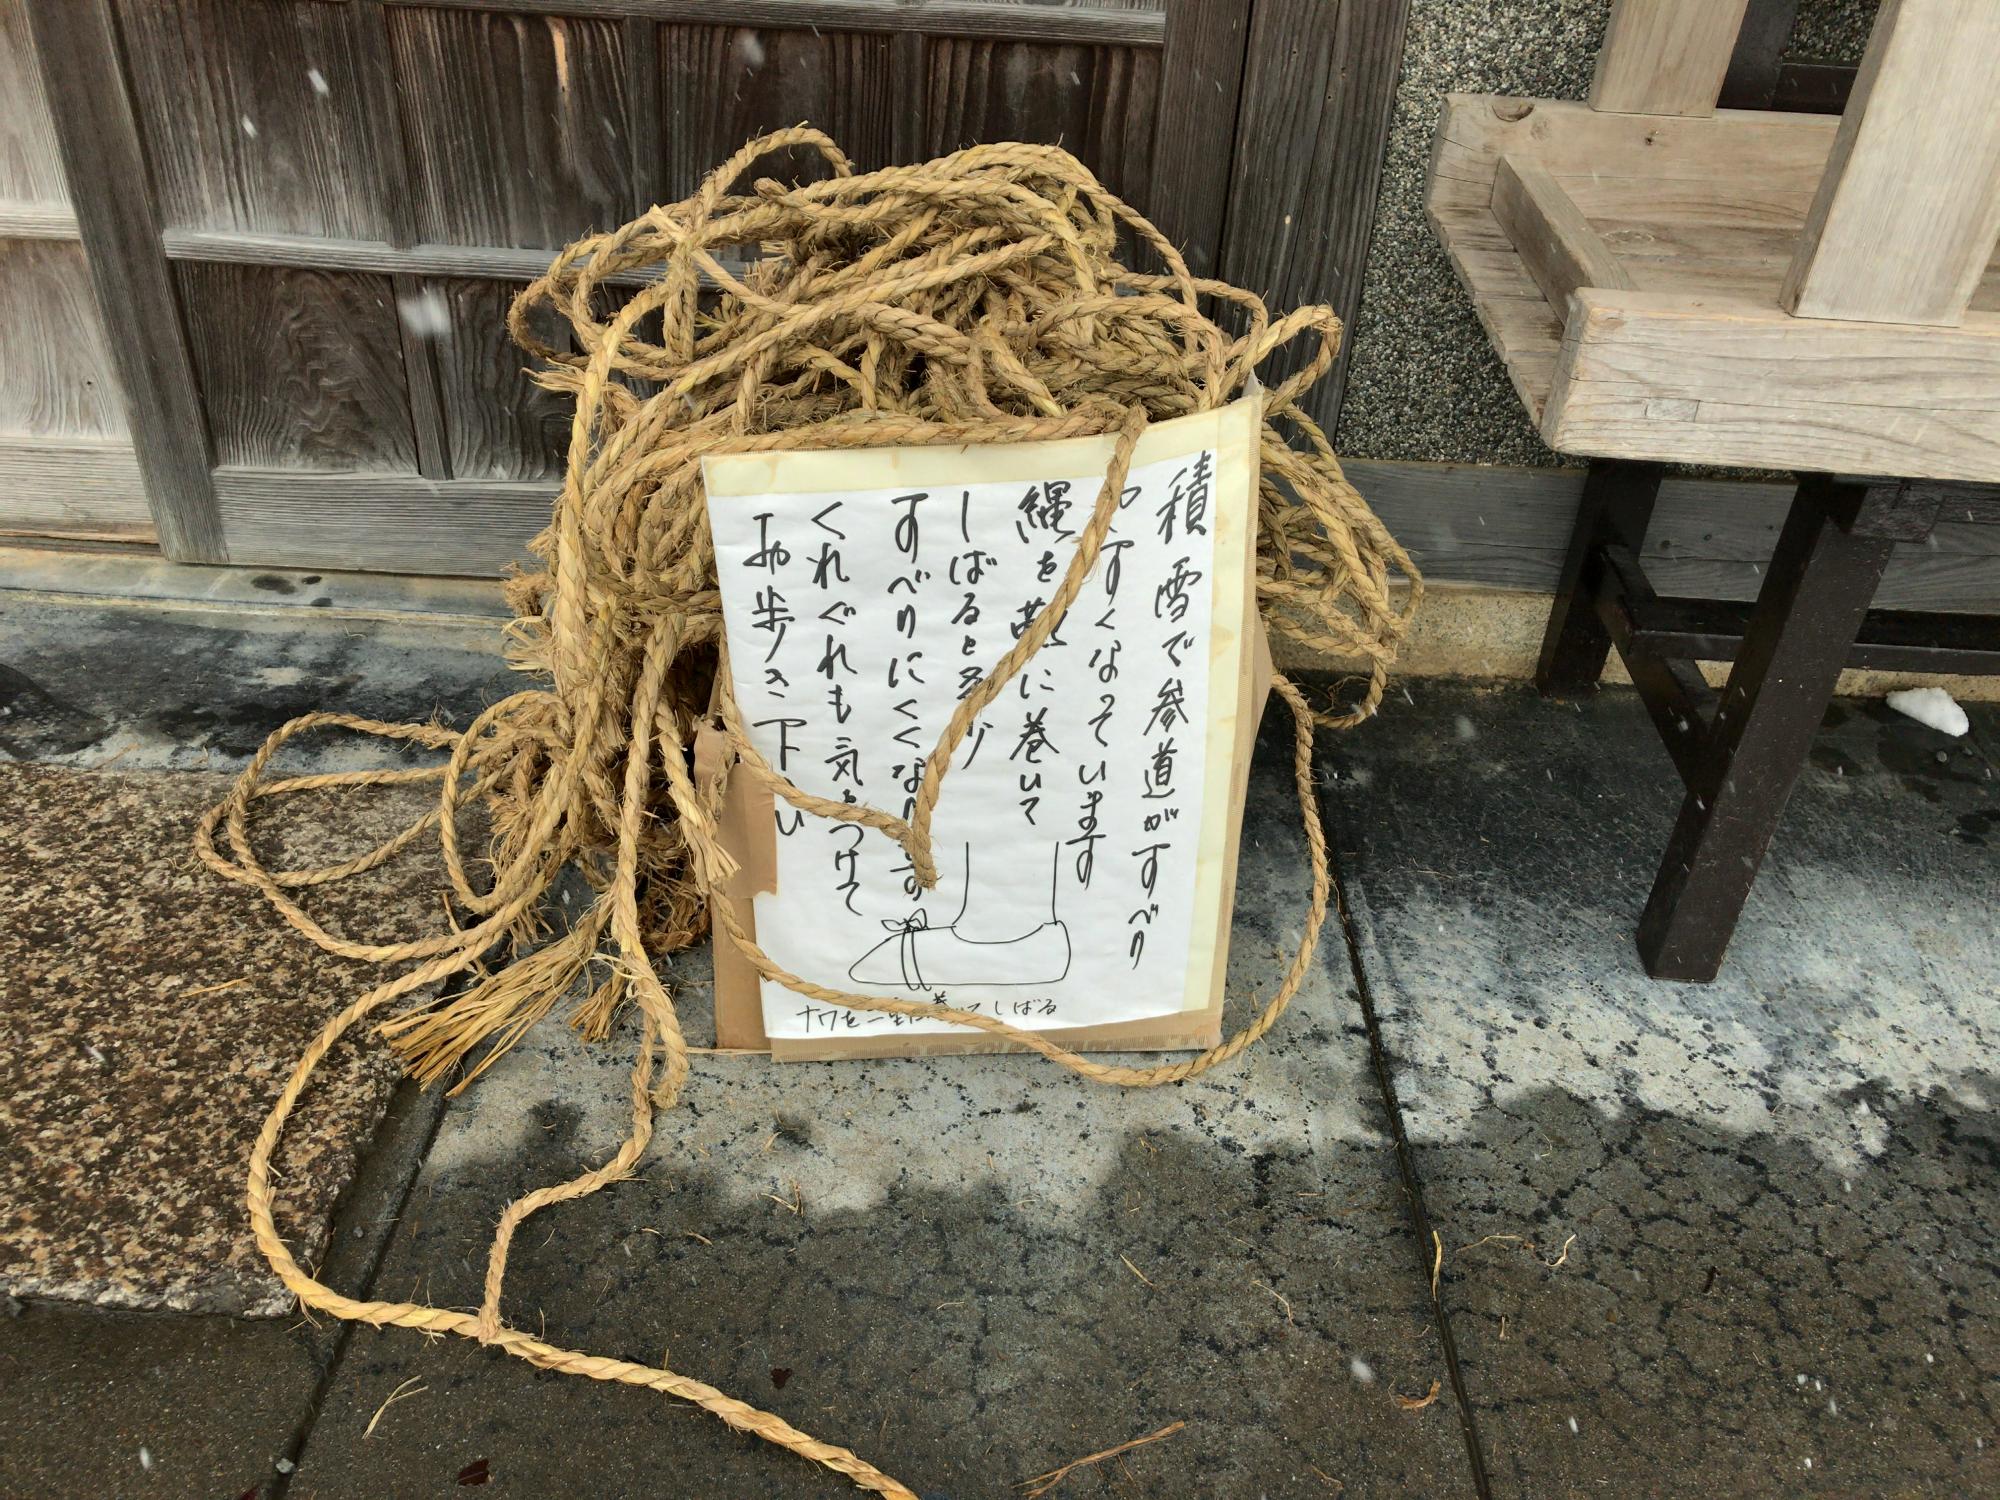 積雪で参道がすべり
やすくなっています
縄を靴に巻いて
しばると多少
すべりにくくなります
くれぐれも気をつけて
お歩き下さい
ナワを二重に巻いてしばる